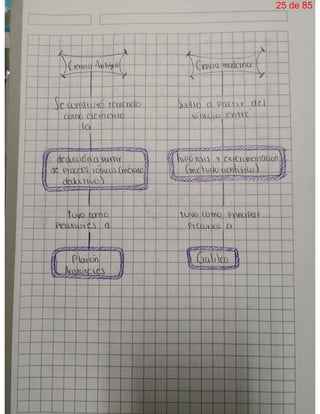 25 de 85
Ciencia Antigua
Se construyó teniendo
como elemento
la
deducción a partir
de procesos lógicos (método
deductivo)
Tuvo como
precursores a
Platón
Aristóteles
Ciencia moderna
a partir del
vínculo entre
hipótesis y experimentación
(método científico)
Tuvo como principal
precursor a
Galileo